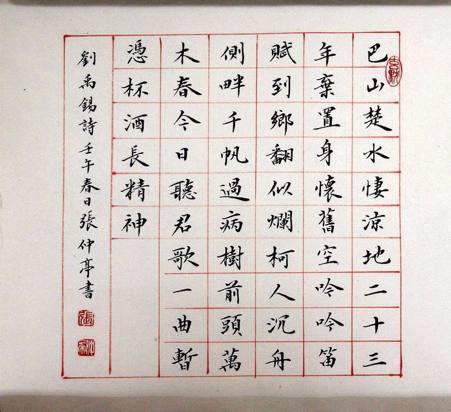 巴山楚水悽涼地二十三
年棄置身懷舊空吟吟笛
賦到鄉翻似爛柯人沉舟
側畔千帆過病樹前頭萬
木春今日聽君歌一曲暫
憑杯酒長精神
劉禹錫詩壬午春日張仲亭書